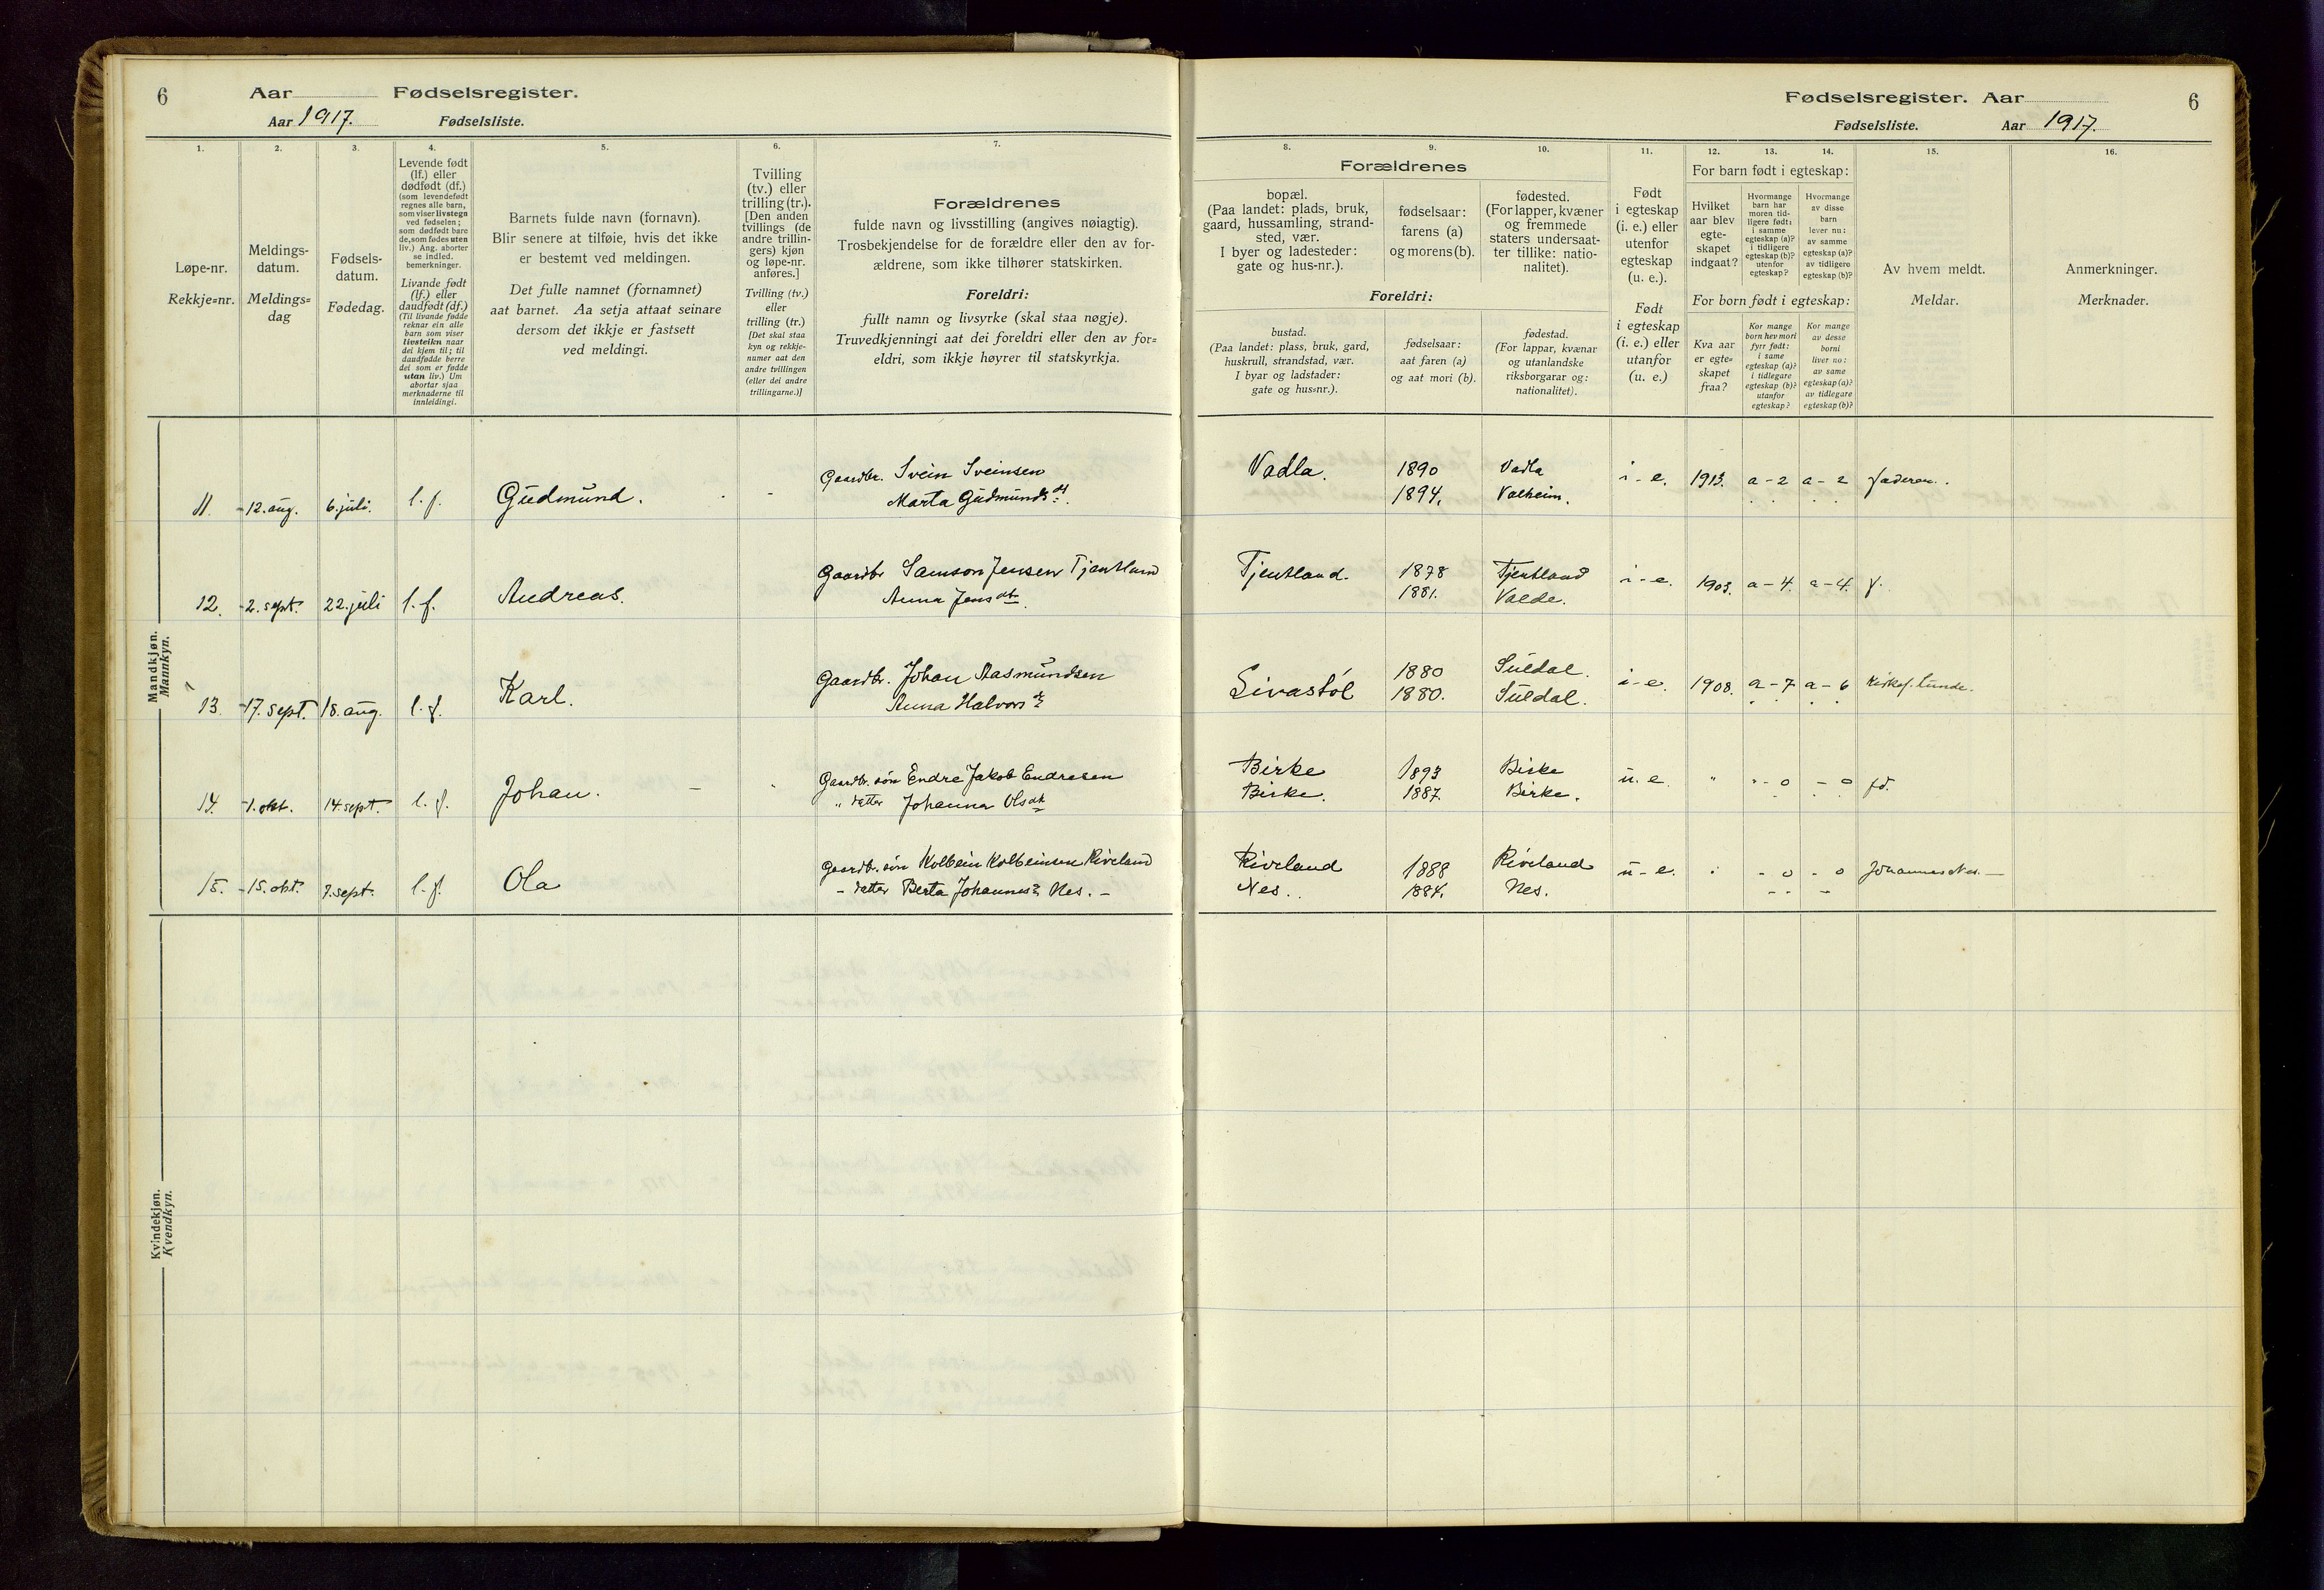 6
Aar Fødselsregister.
Aar 1917. Fødselsliste.
1. 2. 3. 4. 5. 6. 7.
Løpe-nr.
Rekkje=nr.
Meldings-
datum.
Meldings=
dag
Fødsels-
datum.
Fødedag.
Levende født
(lf.) eller
dødfødt (df.)
(som levendefødt
regnes alle barn,
som viser livstegn
ved fødselen;
som dødfødt bare
de, som fødes uten
liv.) Ang. aborter
se indled.
bemerkninger.
Livande født
(lf.) eller
daudfødt (df.)
(Til livande fødde
reknar ein alle
barn som viser
livsteikn naar
dei kjem til; til
daudfødde berre
dei som er fødde
utan liv.) Um
abortar sjaa
merknaderne til
innleidingi.
Barnets fulde navn (fornavn).
Blir senere at tilføie, hvis det ikke
er bestemt ved meldingen.
Det fulle namnet (fornamnet)
aat barnet. Aa setja attaat seinare
dersom det ikkje er fastsett
ved meldingi.
Tvilling
(tv.) eller
trilling (tr.).
[Den anden
tvillings (de
andre trillin-
gers) kjøn
og løpe-nr.
anføres.]
Tvilling (tv.)
eller
trilling (tr.)
[Det skal staa
kyn og rekkje-
numer aat den
andre tvillingen
(eller dei andre
trillingarne.)]
Forældrenes
fulde navn og livsstilling (angives nøiagtig).
Trosbekjendelse for de forældre eller den av for-
ældrene, som ikke tilhører statskirken.
Foreldri:
fullt namn og livsyrke (skal staa nøgje).
Truvedkjenningi aat dei foreldri eller den av for=
eldri, som ikkje høyrer til statskyrkja.
Mandkjøn.
Mannkyn.
11. 12. aug. 6. juli. l. f. Gudmund. Gaardbr. Svein Sveinsen
Marta Gudmundsdt.
12. 2. sept. 22. juli l. f. Andreas. Gaardbr Samson Jensen Tjentland
Anna Jensdt.
13. 17. sept. 18. aug. l. f. Karl. Gaardbr. Johan Aasmundsen
Anna Halvors
14. 1. okt. 14. sept. l. f. Johan. Gaardbr. søn Endre Jakob Endresen
„ datter Johanna Olsdt
15. 15. okt. 7. sept. l. f. Ola Gaardbr. søn Kolbein Kolbeinsen Riveland
- datter Berta Johannes Nes. -
Kvindekjøn.
Kvendkyn.
Fødselsregister. Aar 6
Fødselsliste. Aar 1917.
8. 9. 10. 11. 12. 13. 14. 15. 16.
Forældrenes
bopæl.
(Paa landet: plads, bruk,
gaard, hussamling, strand-
sted, vær.
I byer og ladesteder:
gate og hus-nr.).
fødselsaar:
farens (a)
og morens (b).
fødested.
(For lapper, kvæner
og fremmede
staters undersaat-
ter tillike: natio-
nalitet).
Foreldri:
bustad.
(Paa landet: plass, bruk, gard,
huskrull, strandstad, vær.
I byar og ladstader:
gate og hus=nr.).
fødselsaar:
aat faren (a)
og aat mori (b).
fødestad.
(For lappar, kvænar
og utanlandske
riksborgarar og:
nationalitet).
Født
i egteskap
(i. e.) eller
utenfor
egteskap
(u. e.).
Født
i egteskap
(i. e.) eller
utanfor
(u. e.)
For barn født i egteskap:
Hvilket
aar blev
egte-
skapet
indgaat?
Hvormange
barn har
moren tid-
ligere født:
i samme
egteskap (a)?
i tidligere
egteskap (b)?
utenfor
egteskap?
Hvormange
av disse
barn
lever nu:
av samme
egteskap (a)?
av tidligere
egteskap (b)?
For born født i egteskap:
Kva aar
er egte=
skapet
fraa?
Kor mange
born hev mori
fyrr født:
i same
egteskap (a)?
i tidlegare
egteskap (b)?
utanfor
egteskap?
Kor mange
av desse
borni
liver no:
av same
egteskap (a)?
av tidlegare
egteskap (b)?
Av hvem meldt.
Meldar.
Anmerkninger.
Merknader.
Vadla. 1890 Vadla i - e. 1913. a - 2 a - 2 faderen.
1894. Valheim.
Tjentland. 1878 Tjentland i - e. 1903. a - 4. a - 4. f.
1881. Valde.
Livastøl 1880 Suldal. i - e. 1908. a - 7 a - 6 Kirkes. Lunde.
1880. Suldal.
Birke 1893 Birke u. e. „ - 0 - 0 fd.
Birke. 1887. Birke.
Riveland 1888 Riveland u - e. - 0 - 0 Johannes Nes. -
Nes. 1884. Nes.